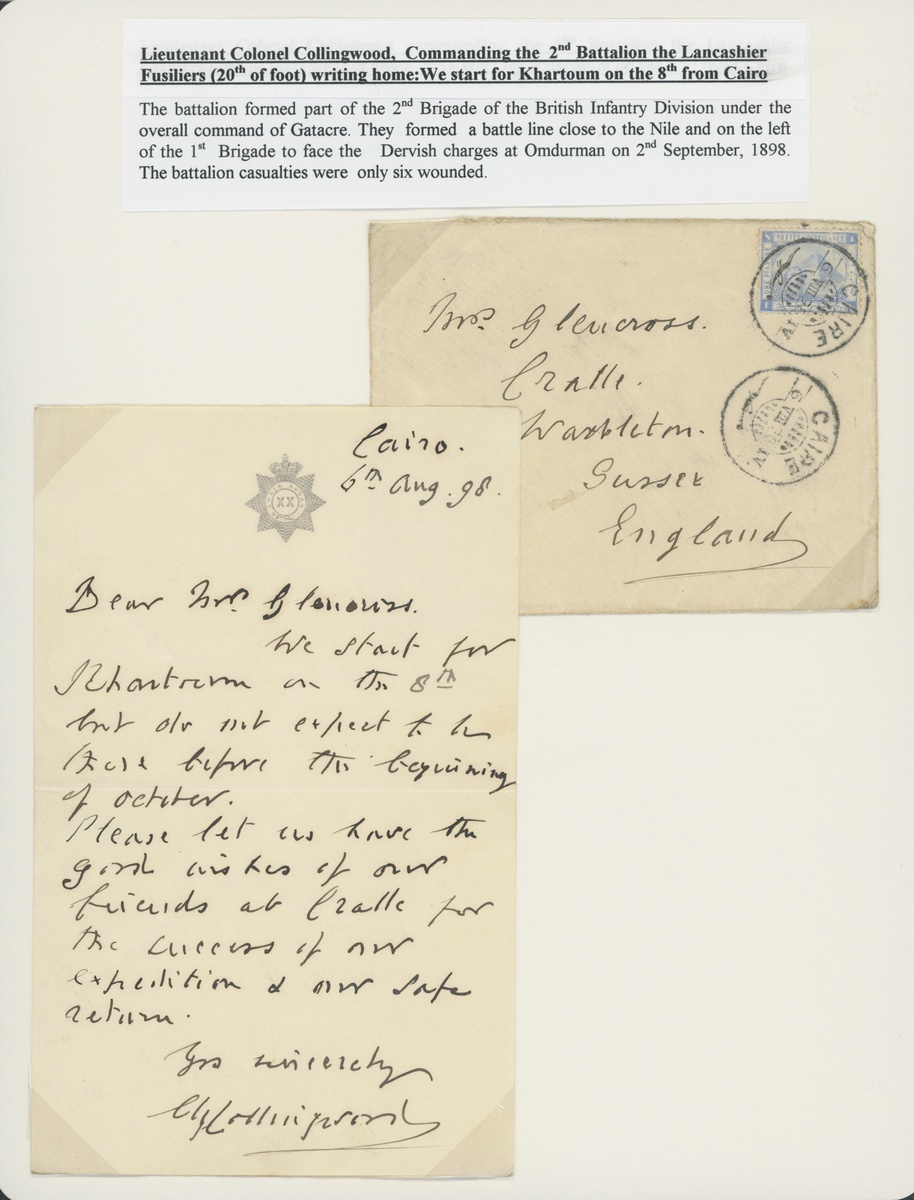 Lieutenant Colonel Collingwood, Commanding the 2nd Battalion the Lancashier
Fusiliers (20th of foot) writing home:We start for Khartoum on the 8th from Cairo
The battalion formed part of the 2nd Brigade of the British Infantry Division under the
overall command of Gatacre. They formed a battle line close to the Nile and on the left
of the 1st Brigade to face the Dervish charges at Omdurman on 2nd September, 1898.
The battalion casualties were only six wounded.
Mrs. Glencross.
Cralle.
Warbleton.
Sussex
England
CAIRE
CAIRE
Cairo.
6th Aug. 98.
XX
Dear Mrs. Glencross.
We start for
Khartoum on the 8th
but do not expect to be
there before the beginning
of October.
Please let us have the
good wishes of our
friends at Cralle for
the success of our
expedition & our safe
return.
Yrs sincerely
Collingwood